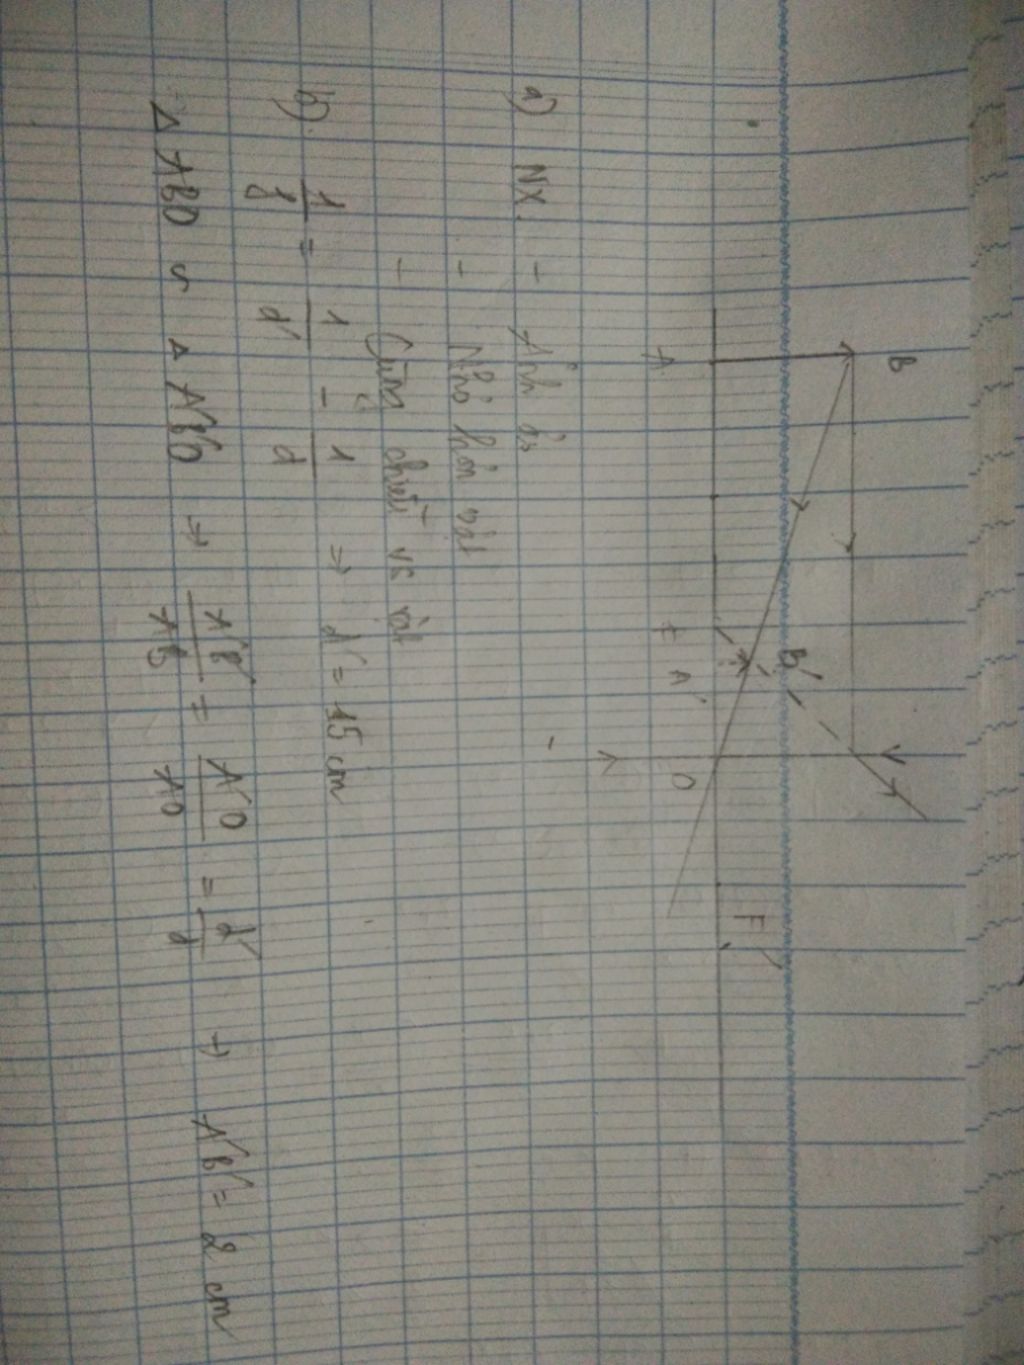 B
B'
F'
A
F
A'
O
a) NX. - Ảnh ảo
- Nhỏ hơn vật
- Cùng chiều vs vật
b). 1/f = 1/d' - 1/d ⇒ d' = 15 cm
Δ ABO ∽ Δ A'B'O → A'B'/AB = A'O/AO = d'/d → A'B' = 2 cm